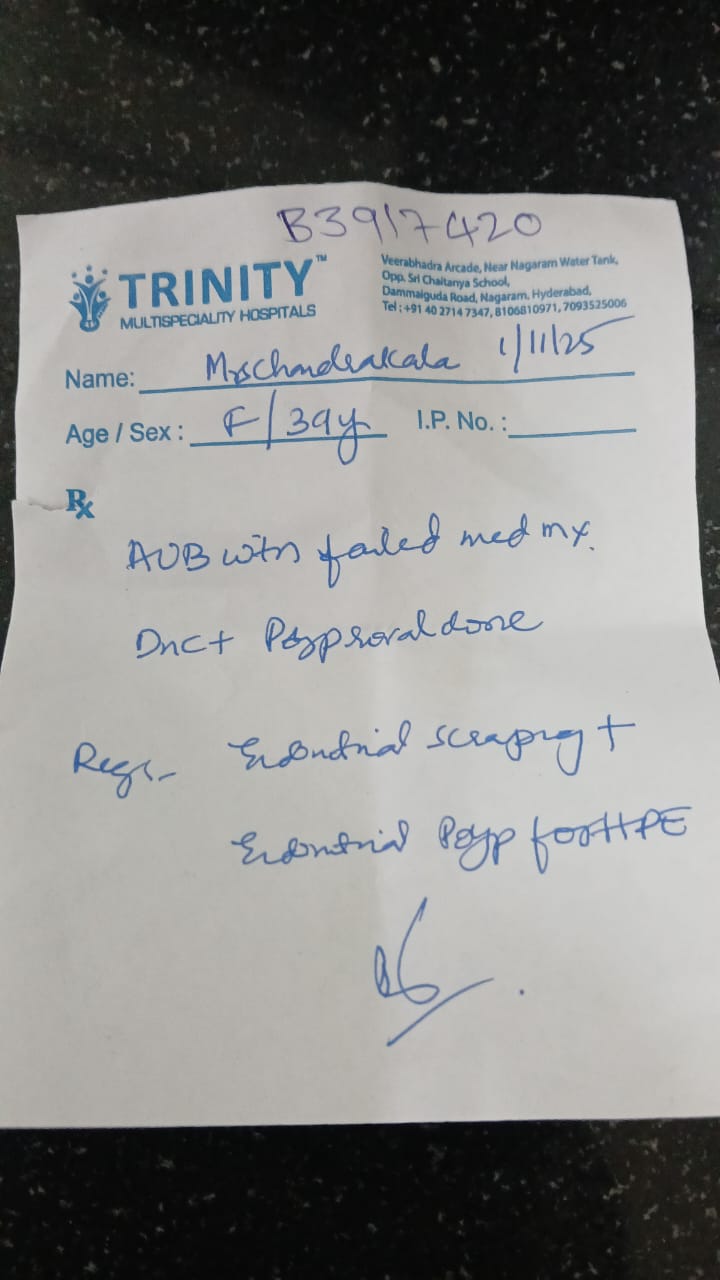 B3917420
TRINITY™
MULTISPECIALITY HOSPITALS
Veerabhadra Arcade, Near Nagaram Water Tank,
Opp. Sri Chaitanya School,
Dammaiguda Road, Nagaram, Hyderabad,
Tel : +91 40 2714 7347, 8106810971, 7093525006
Name: Mrs Chandrakala 1/11/25
Age / Sex : F/39y I.P. No. :
Rx
AUB with failed med mx.
Dnc + Polyp done
+
Endometrial Polyp for HPE